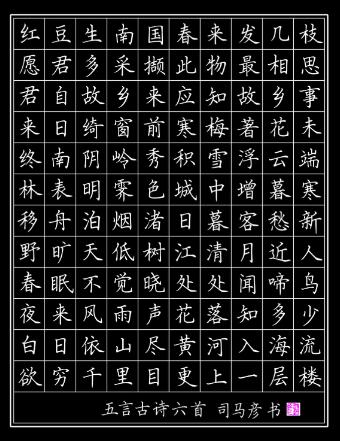 红豆生南国春来发几枝
愿君多采撷此物最相思
君自故乡来应知故乡事
来日绮窗前寒梅著花未
终南阴岭秀积雪浮云端
林表明霁色城中增暮寒
移舟泊烟渚日暮客愁新
野旷天低树江清月近人
春眠不觉晓处处闻啼鸟
夜来风雨声花落知多少
白日依山尽黄河入海流
欲穷千里目更上一层楼
五言古诗六首 司马彦书